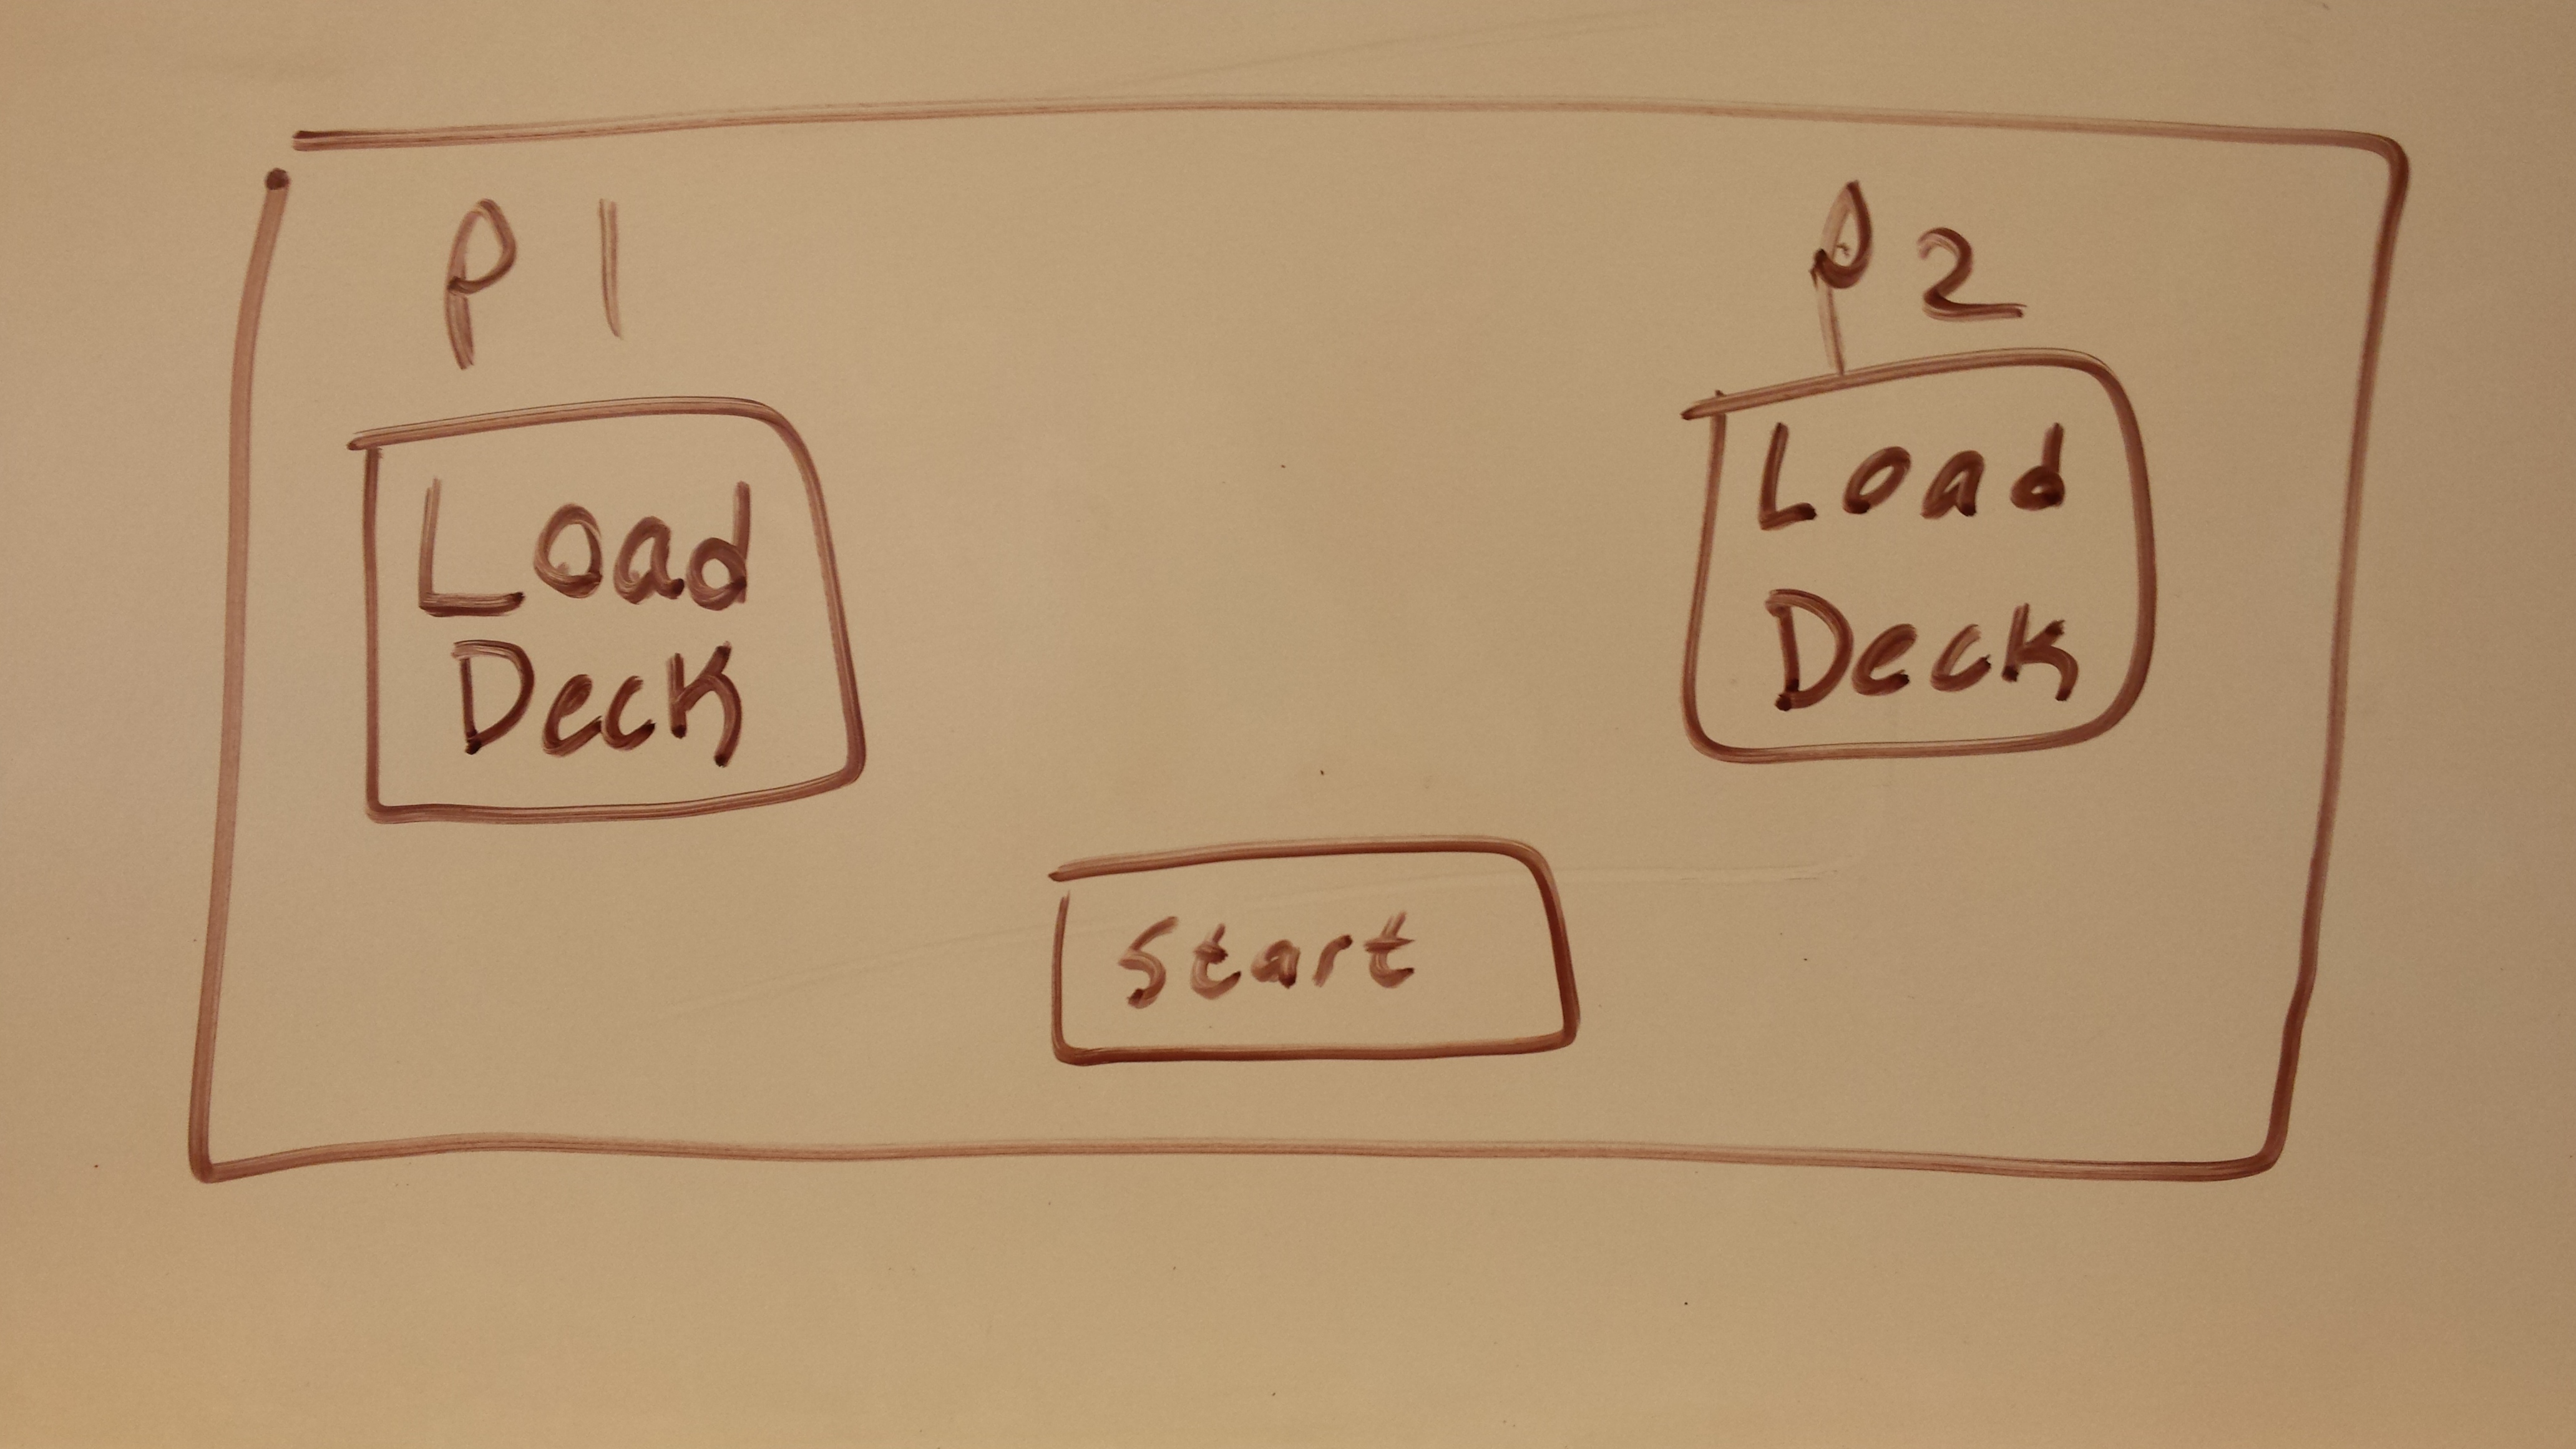 P 1
P 2
Load
Deck
Load
Deck
Start